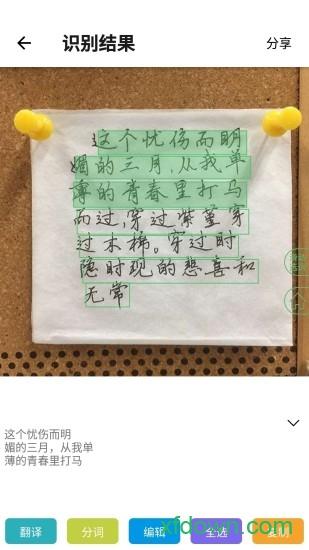 识别结果
分享
这个忧伤而明
媚的三月,从我单
薄的青春里打马
而过,穿过紫堇穿
过木棉。穿过时
隐时现的悲喜和
无常
这个忧伤而明
媚的三月，从我单
薄的青春里打马
翻译
分词
编辑
全选
复制
xfdown.com